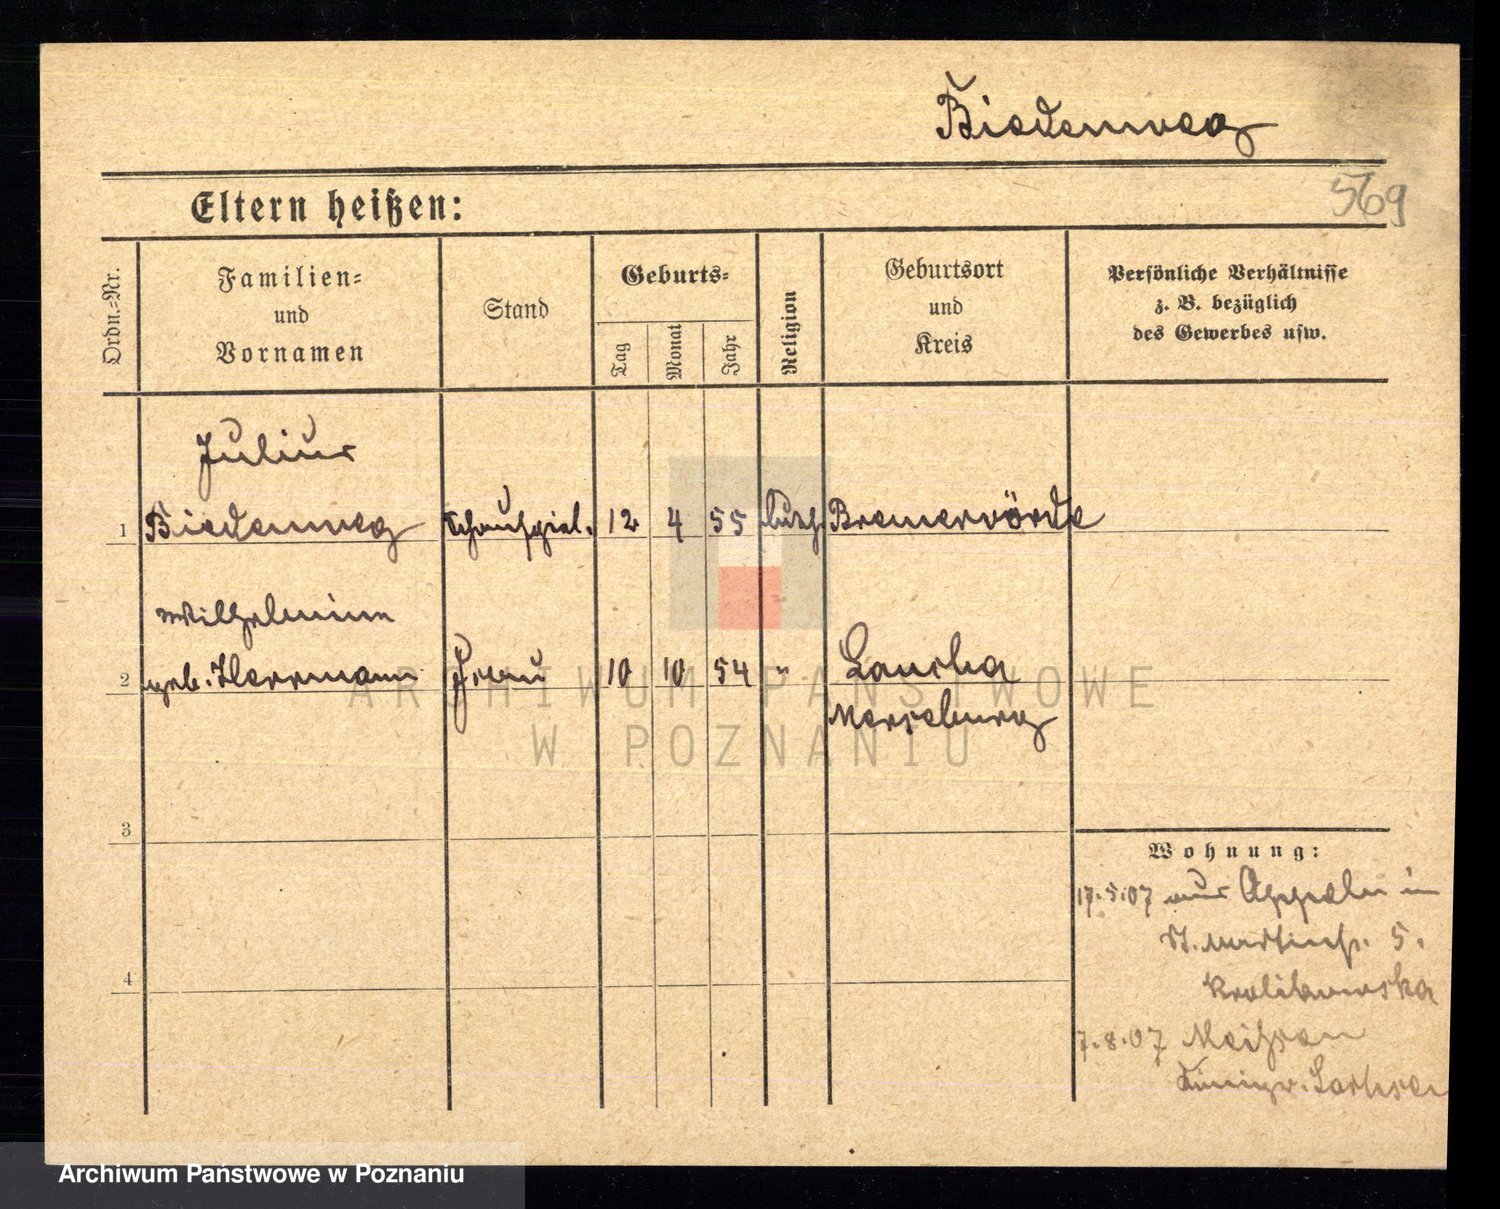 Biedenweg
569
Eltern heißen:
Ordn.-Nr.
Familien-
und
Vornamen
Stand
Geburts-
Tag
Monat
Jahr
Religion
Geburtsort
und
Kreis
Persönliche Verhältnisse
z. B. bezüglich
des Gewerbes usw.
Julius
1 Biedenweg Schauspiel. 12 4 55 luth. Bremervörde
Wilhelmine
2 geb. Herrmann Frau 10 10 54 " Laucha
Merseburg
3
4
Wohnung:
17.5.07 aus Oppeln in
St. Martinstr. 5.
Krolikowska
7.8.07 Meißen
Königr. Sachsen
ARCHIWUM PAŃSTWOWE
W POZNANIU
Archiwum Państwowe w Poznaniu